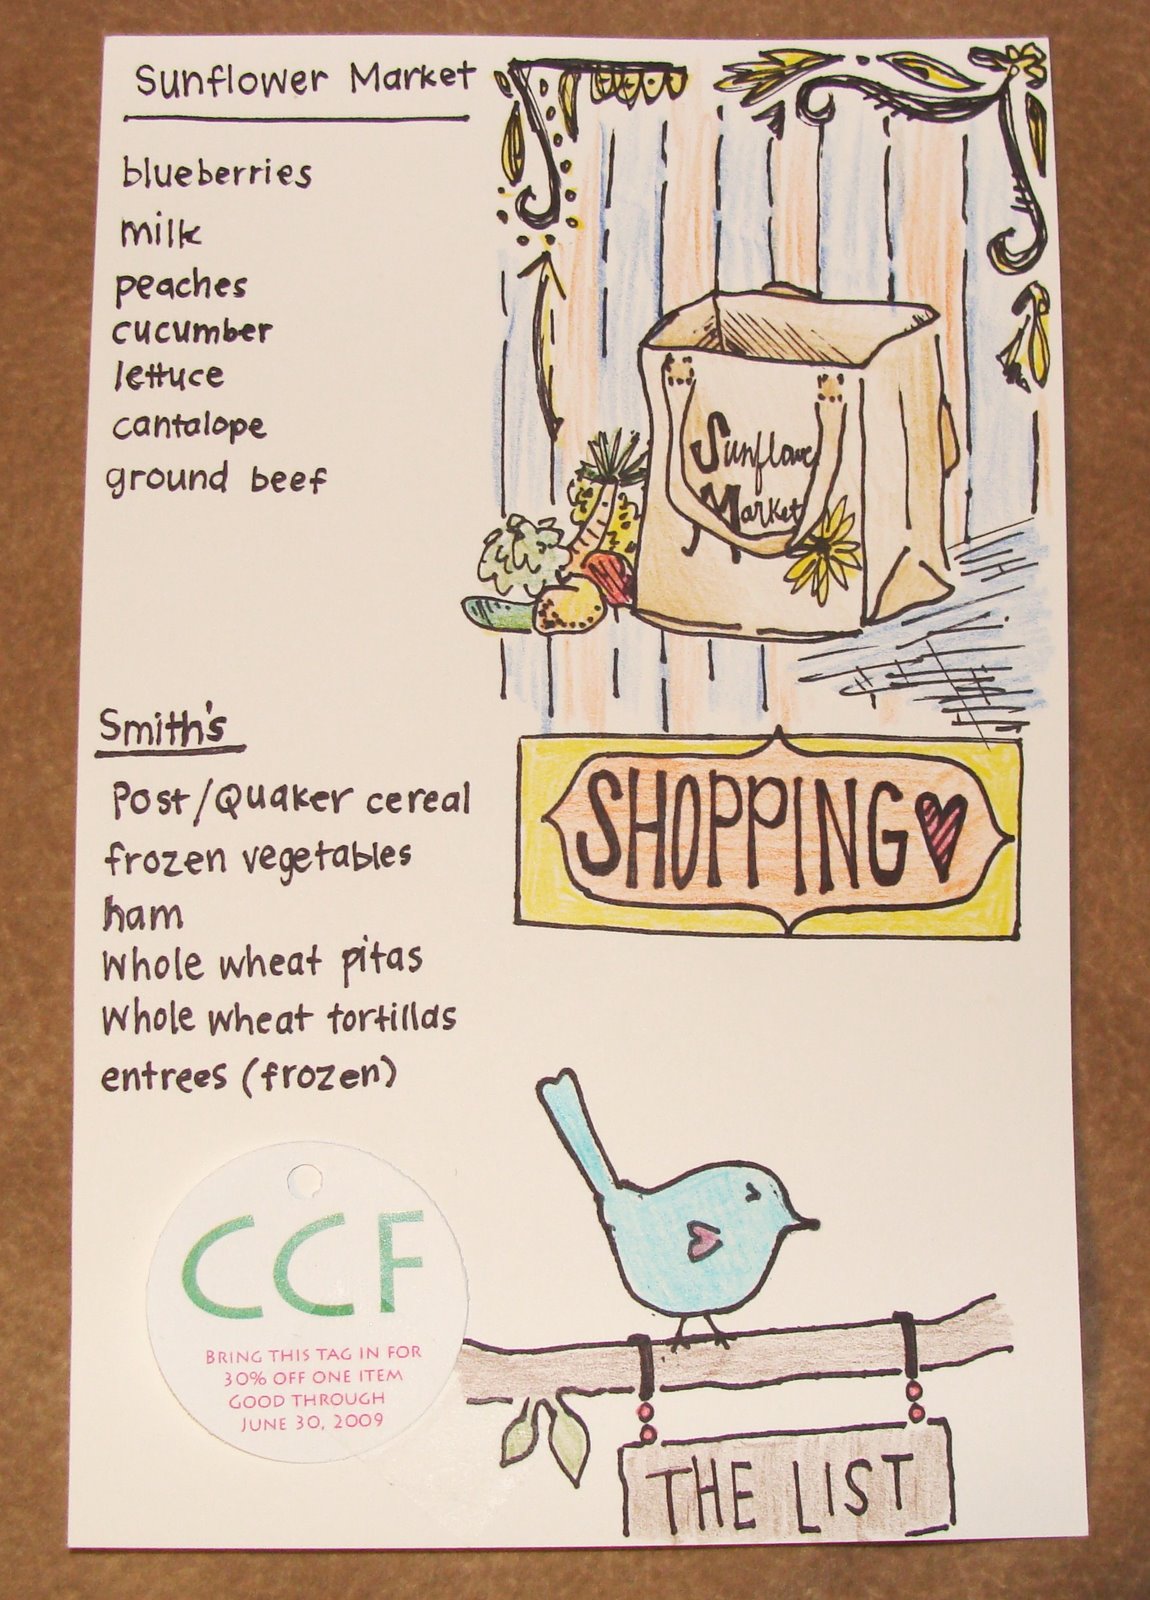 Sunflower Market
blueberries
milk
peaches
cucumber
lettuce
cantalope
ground beef
Sunflower
Market
Smith's
Post/Quaker cereal
frozen vegetables
ham
Whole wheat pitas
Whole wheat tortillas
entrees (frozen)
SHOPPING
CCF
BRING THIS TAG IN FOR
30% OFF ONE ITEM
GOOD THROUGH
JUNE 30, 2009
THE LIST